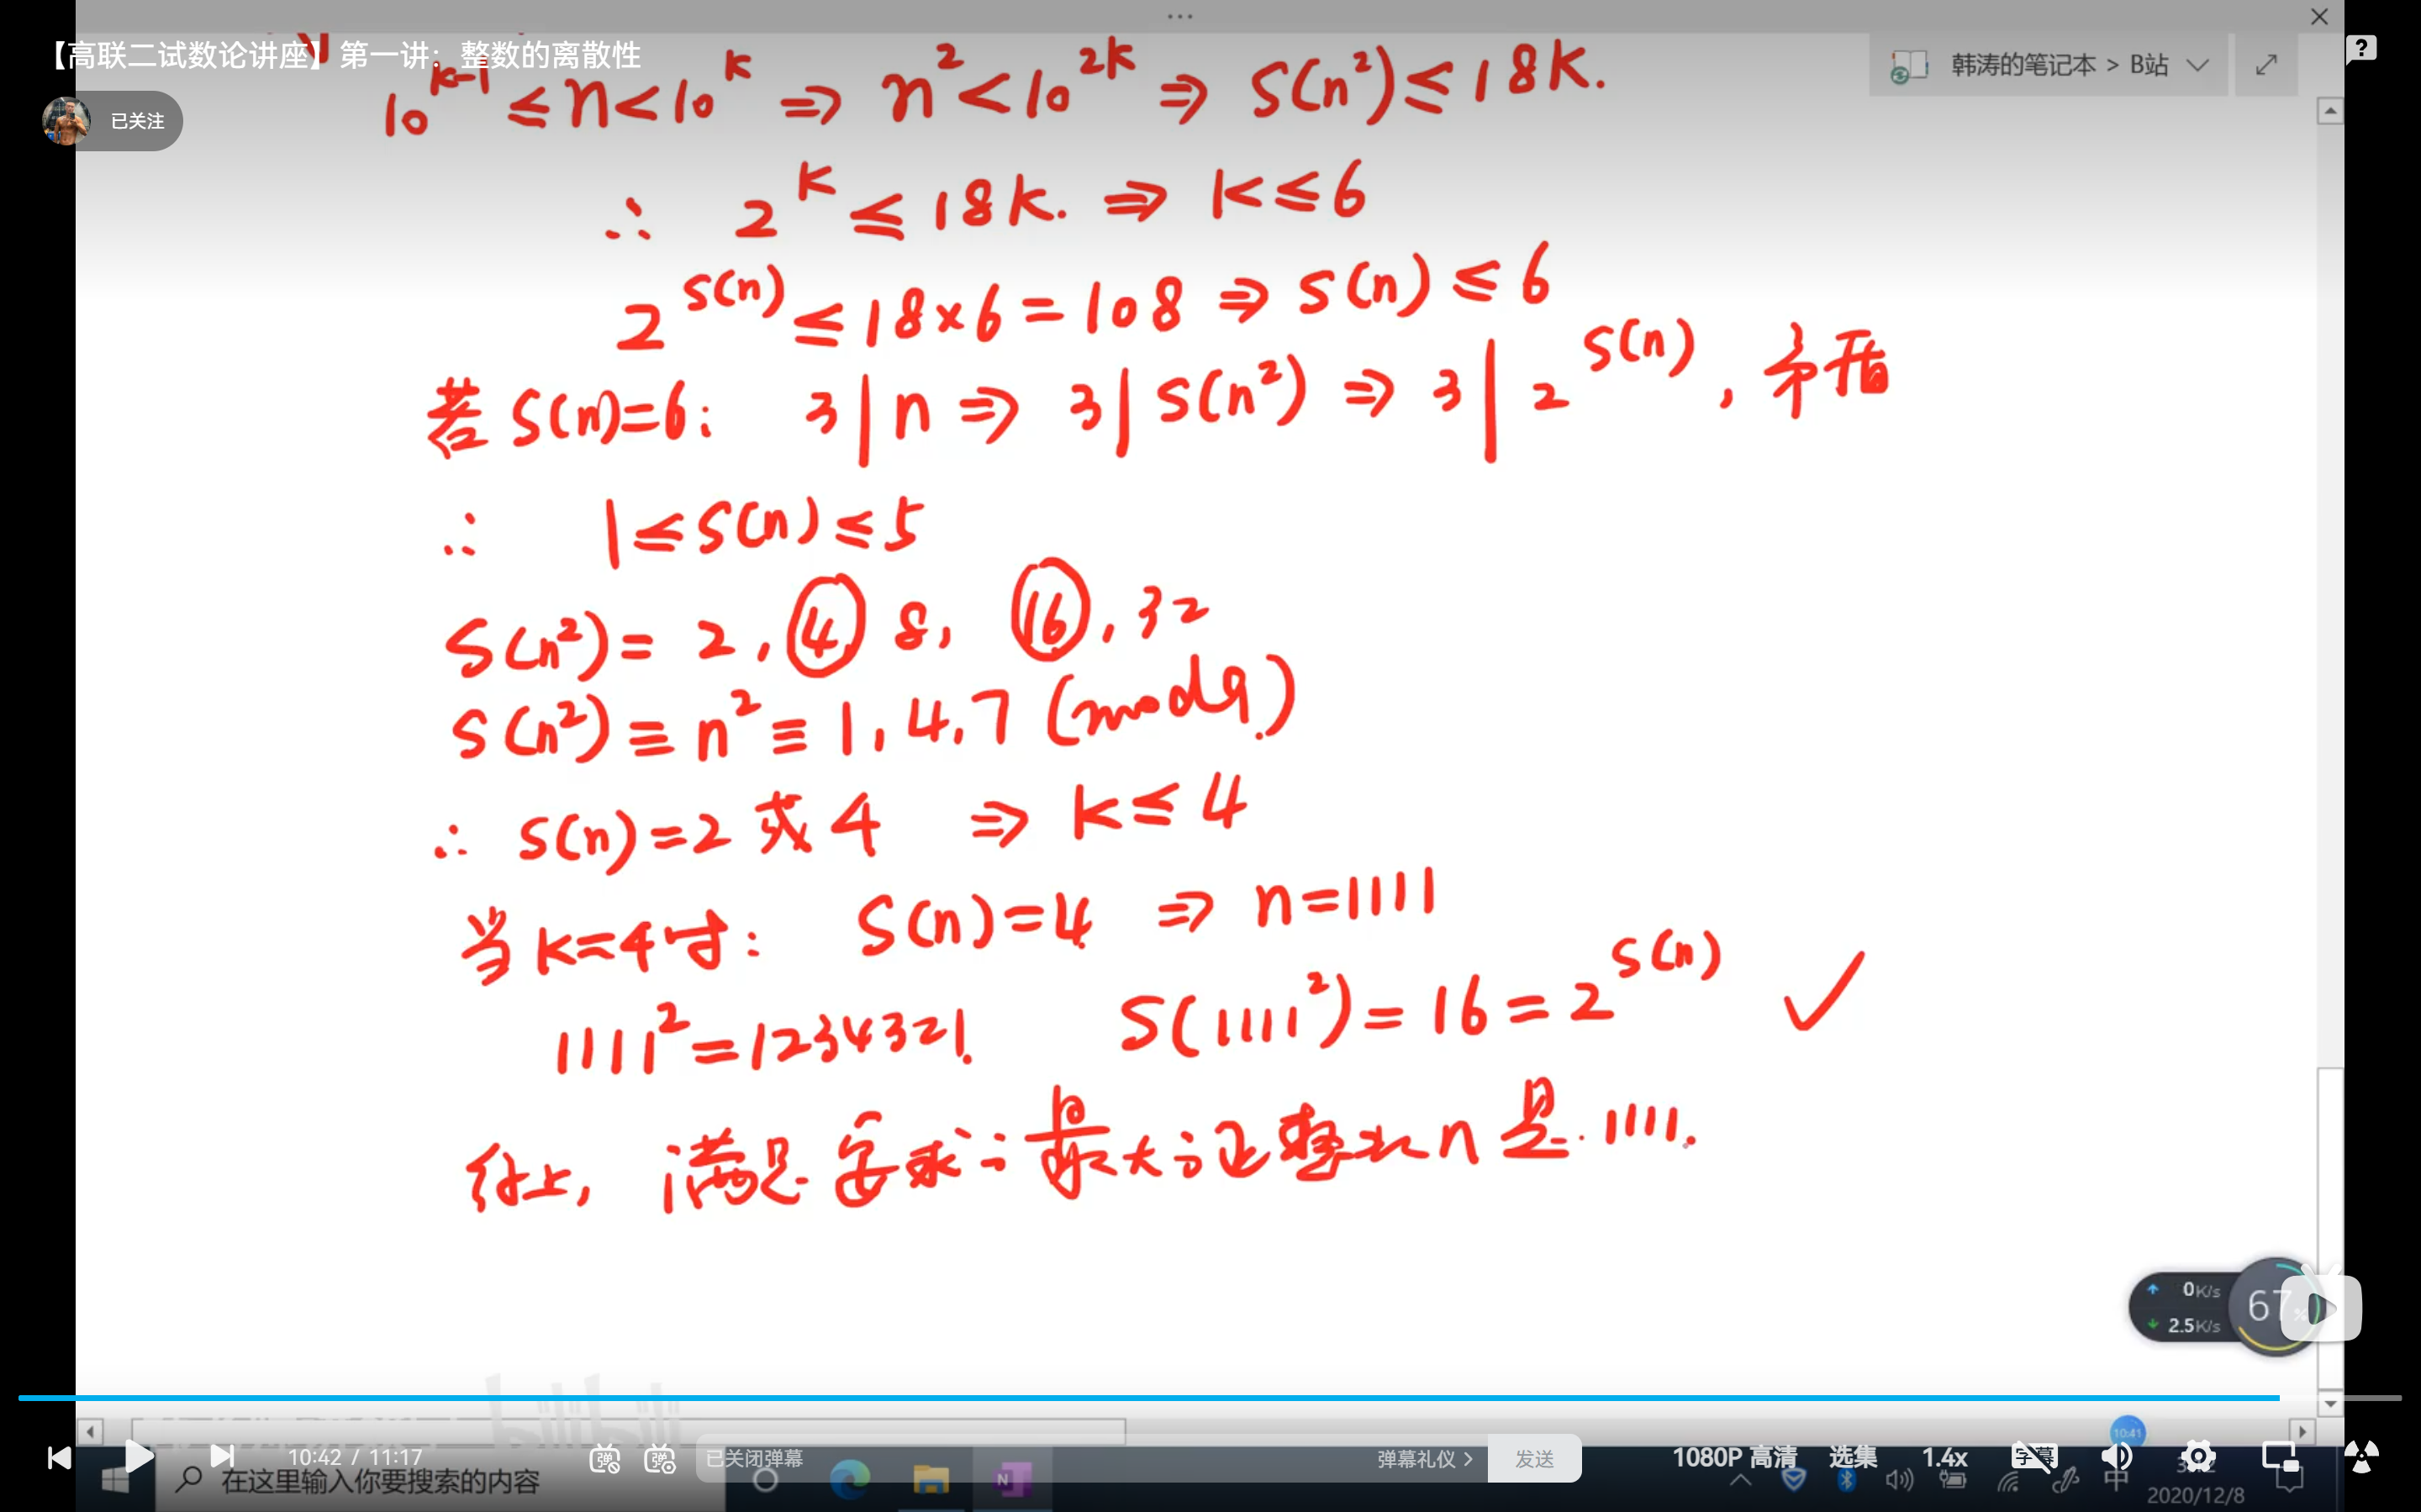 【高联二试数论讲座】第一讲：整数的离散性
已关注
韩涛的笔记本 > B站
10^{k-1} ≤ n < 10^k ⇒ n² < 10^{2k} ⇒ S(n²) ≤ 18k.
∴ 2^k ≤ 18k. ⇒ k ≤ 6
2^{S(n)} ≤ 18×6 = 108 ⇒ S(n) ≤ 6
若 S(n)=6: 3|n ⇒ 3|S(n²) ⇒ 3|2^{S(n)}, 矛盾
∴ 1 ≤ S(n) ≤ 5
S(n²) = 2, ④ 8, ⑯, 32
S(n²) ≡ n² ≡ 1, 4, 7 (mod 9.)
∴ S(n)=2 或 4 ⇒ k ≤ 4
当 k=4 时: S(n)=4 ⇒ n=1111
1111² = 1234321. S(1111²) = 16 = 2^{S(n)} ✓
综上, 满足要求的最大的正整数 n 是 1111.
0K/s
2.5K/s
67%
bilibili
10:41
10:42 / 11:17
弹
弹
已关闭弹幕
弹幕礼仪 >
发送
1080P 高清
选集
1.4x
字幕
在这里输入你要搜索的内容
N
中
2020/12/8